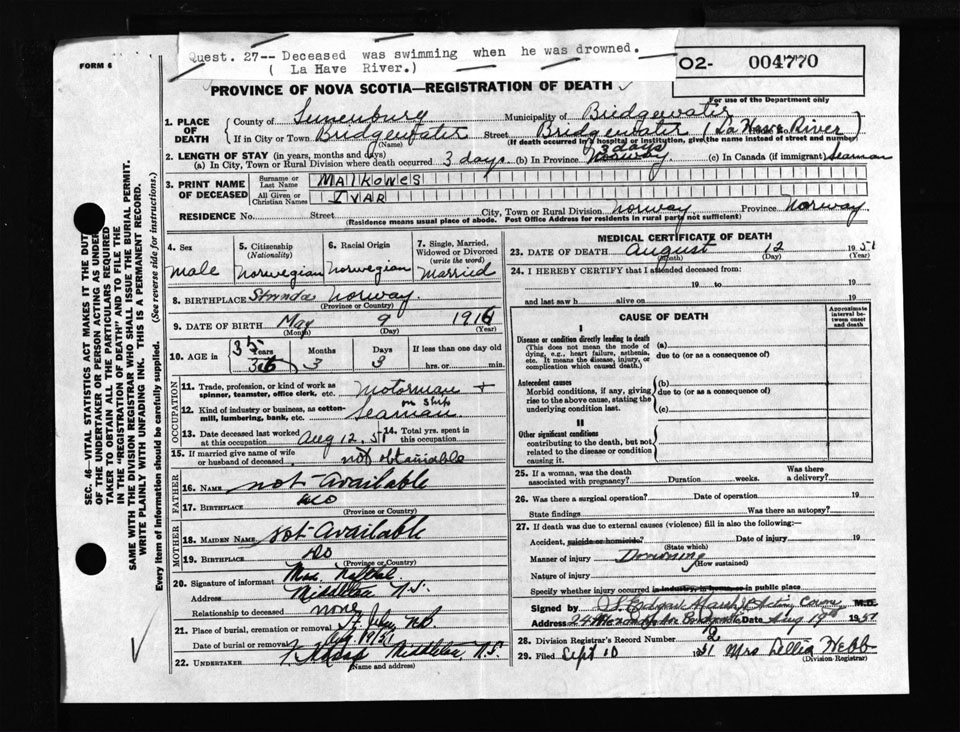 Quest. 27-- Deceased was swimming when he was drowned.
( La Have River.)
FORM 6
O2- 004770
For use of the Department only
PROVINCE OF NOVA SCOTIA—REGISTRATION OF DEATH
1. PLACE OF DEATH
County of Lunenburg Municipality of Bridgewater
If in City or Town Bridgewater Street Bridgewater (La Have River)
(Name) (If death occurred in a hospital or institution, give the name instead of street and number)
2. LENGTH OF STAY (in years, months and days)
(a) In City, Town or Rural Division where death occurred 3 days. (b) In Province 3 days Norway (c) In Canada (if immigrant) Seaman
3. PRINT NAME OF DECEASED
Surname or Last Name MALKONES
All Given or Christian Names IVAR
RESIDENCE No. Street City, Town or Rural Division Norway Province Norway
(Residence means usual place of abode. Post Office Address for residents in rural parts not sufficient)
4. Sex Male
5. Citizenship (Nationality) Norwegian
6. Racial Origin Norwegian
7. Single, Married, Widowed or Divorced (write the word) Married
8. BIRTHPLACE Norway.
(Province or Country)
9. DATE OF BIRTH May 9 1916
(Month) (Day) (Year)
10. AGE in 35 Years 3 Months 3 Days If less than one day old
hrs. or min.
OCCUPATION
11. Trade, profession, or kind of work as spinner, teamster, office clerk, etc. Motorman +
12. Kind of industry or business, as cotton-mill, lumbering, bank, etc. on ship Seaman
13. Date deceased last worked at this occupation Aug 12, 51
14. Total yrs. spent in this occupation
15. If married give name of wife or husband of deceased not obtainable
FATHER
16. NAME not Available
17. BIRTHPLACE do
(Province or Country)
MOTHER
18. MAIDEN NAME not Available
19. BIRTHPLACE do
(Province or Country)
20. Signature of informant
Address N.S.
Relationship to deceased none
21. Place of burial, cremation or removal N.B.
Date of burial or removal Aug. 19/51
22. UNDERTAKER N.S.
(Name and address)
MEDICAL CERTIFICATE OF DEATH
23. DATE OF DEATH August 12 1951
(Month) (Day) (Year)
24. I HEREBY CERTIFY that I attended deceased from:
19 to 19
and last saw h alive on 19
CAUSE OF DEATH
Approximate interval between onset and death
I
Disease or condition directly leading to death (a)
(This does not mean the mode of dying, e.g., heart failure, asthenia, etc. It means the disease, injury, or complication which caused death.)
due to (or as a consequence of)
Antecedent causes (b)
Morbid conditions, if any, giving rise to the above cause, stating the underlying condition last.
due to (or as a consequence of)
(c)
II
Other significant conditions
contributing to the death, but not related to the disease or condition causing it.
25. If a woman, was the death associated with pregnancy? Duration weeks. Was there a delivery?
26. Was there a surgical operation? Date of operation 19
State findings Was there an autopsy?
27. If death was due to external causes (violence) fill in also the following:—
Accident, suicide or homicide? Date of injury 19
(State which)
Manner of injury Drowning
(How sustained)
Nature of injury
Specify whether injury occurred in industry, in home or in public place
Signed by Acting Coroner M.D.
Address Date Aug 19th 1951
28. Division Registrar's Record Number 2
29. Filed Sept 10 1951 Mrs Webb
(Division Registrar)
SEC. 46—VITAL STATISTICS ACT MAKES IT THE DUTY
OF THE UNDERTAKER OR PERSON ACTING AS UNDER-
TAKER TO OBTAIN ALL THE PARTICULARS REQUIRED
IN THE "REGISTRATION OF DEATH" AND TO FILE THE
SAME WITH THE DIVISION REGISTRAR WHO SHALL ISSUE THE BURIAL PERMIT.
WRITE PLAINLY WITH UNFADING INK. THIS IS A PERMANENT RECORD.
Every item of information should be carefully supplied. (See reverse side for instructions.)